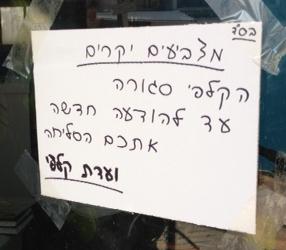 בס"ד
מצביעים יקרים
הקלפי סגורה
עד להודעה חדשה
אתכם הסליחה
ועדת קלפי